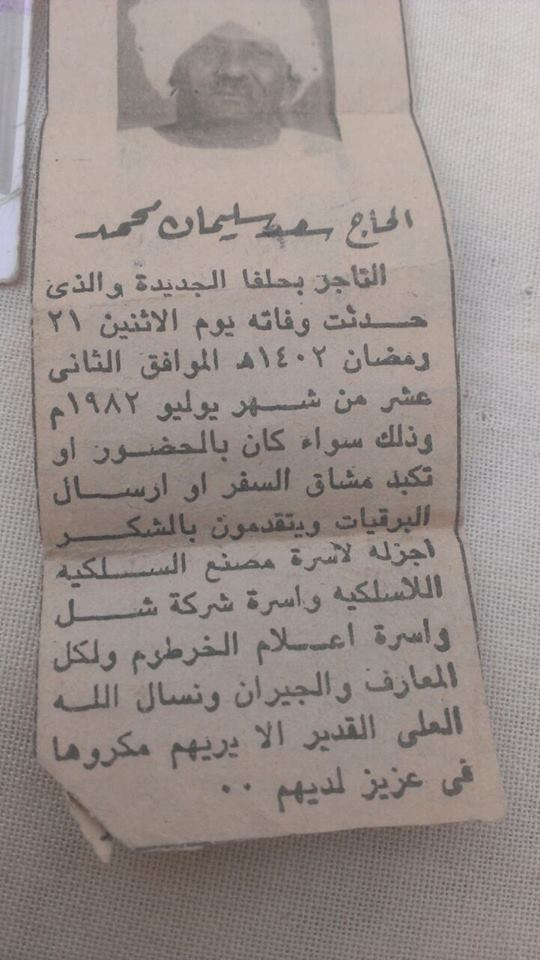 الحاج سعد سليمان محمد
التاجر بحلفا الجديدة والذى
حدثت وفاته يوم الاثنين ٢١
رمضان ١٤٠٢ھ الموافق الثانى
عشر من شهر يوليو ١٩٨٢م
وذلك سواء كان بالحضور او
تكبد مشاق السفر او ارسال
البرقيات ويتقدمون بالشكر
اجزله لاسرة مصنع السلكيه
اللاسلكيه واسرة شركة شل
واسرة اعلام الخرطوم ولكل
المعارف والجيران ونسال الله
العلى القدير الا يريهم مكروها
فى عزيز لديهم ٠٠